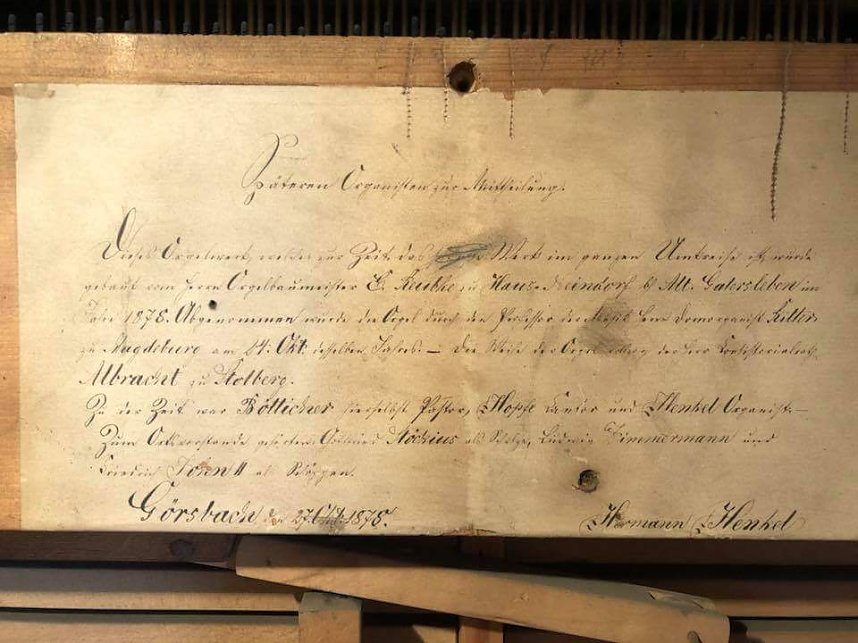 Späteren Organisten zur Mittheilung.
Dieses Orgelwerk, welches zur Zeit das Werk im ganzen Umkreise ist, wurde
gebaut vom Herrn Orgelbaumeister E. Reubke zu Haus-Neindorf b Alt. Gatersleben im
Jahre 1878. Abgenommen wurde die Orgel durch den Professor der Musik Herr Domorganist Ritter
zu Magdeburg am 24. Okt. desselben Jahres. — Die Weihe der Orgel vollzog der Herr Konsistorialrath
Albracht zu Stolberg.
Zu der Zeit war Bötticher hierselbst Pastor, Hopfe Cantor und Henkel Organist. —
Zum Ortsvorstande gehörten: Stöckius als Schulze, Ludwig Zimmermann und
Friedrich John II als Schöppen.
Görsbach den 27 Okt. 1878. Hermann Henkel